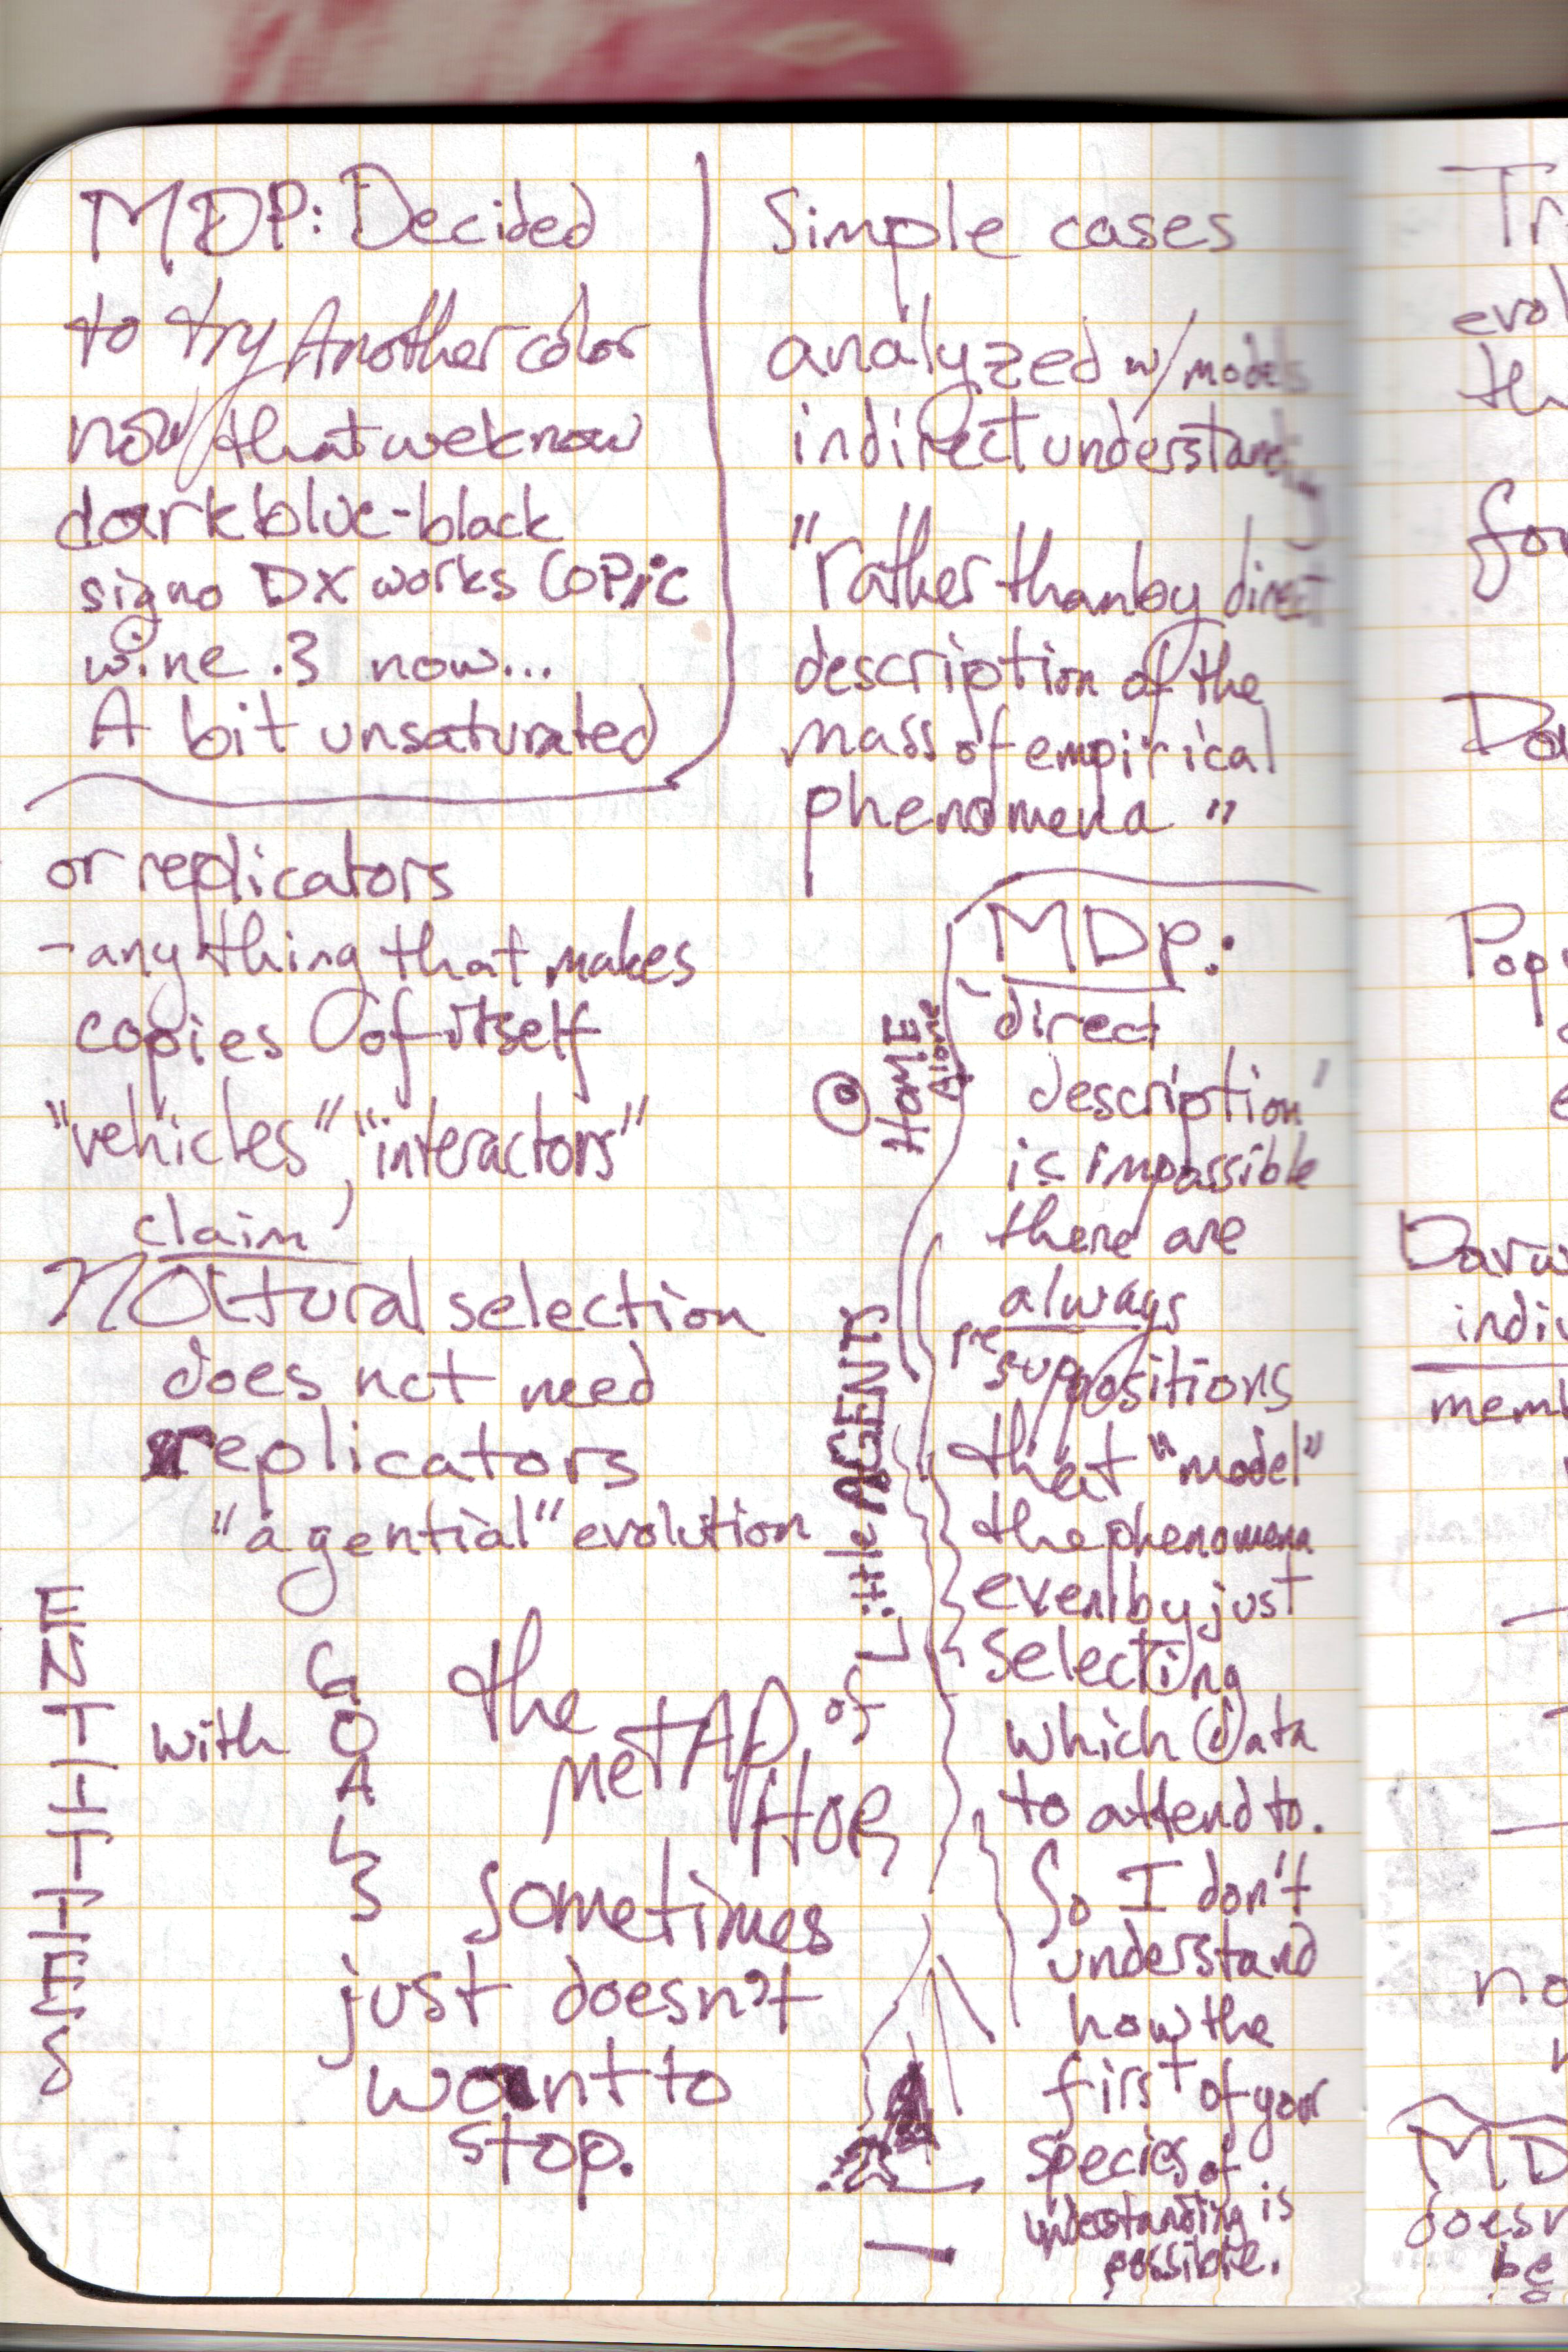 MDP: Decided
to try Another color
now that we know
dark blue-black
signo DX works Copic
wine .3 now...
A bit unsaturated
or replicators
- anything that makes
copies of itself
"vehicles", "interactors"
claim
Natural selection
does not need
replicators
"agential" evolution
ENTITIES
with
GOALS
the
METAPHOR
of
Little AGENTS
sometimes
just doesn't
want to
stop.
Simple cases
analyzed w/ models
indirect understanding
"rather than by direct
description of the
mass of empirical
phenomena"
@ HOME
Alone
MDP:
'direct
description'
is impossible
there are
always
presuppositions
that "model"
the phenomena
even by just
selecting
which data
to attend to.
So I don't
understand
how the
first of your
species of
understanding is
possible.
Tr
evol
th
for
Da
Pop
e
Darw
indiv
mem
no
MD
doesn
be